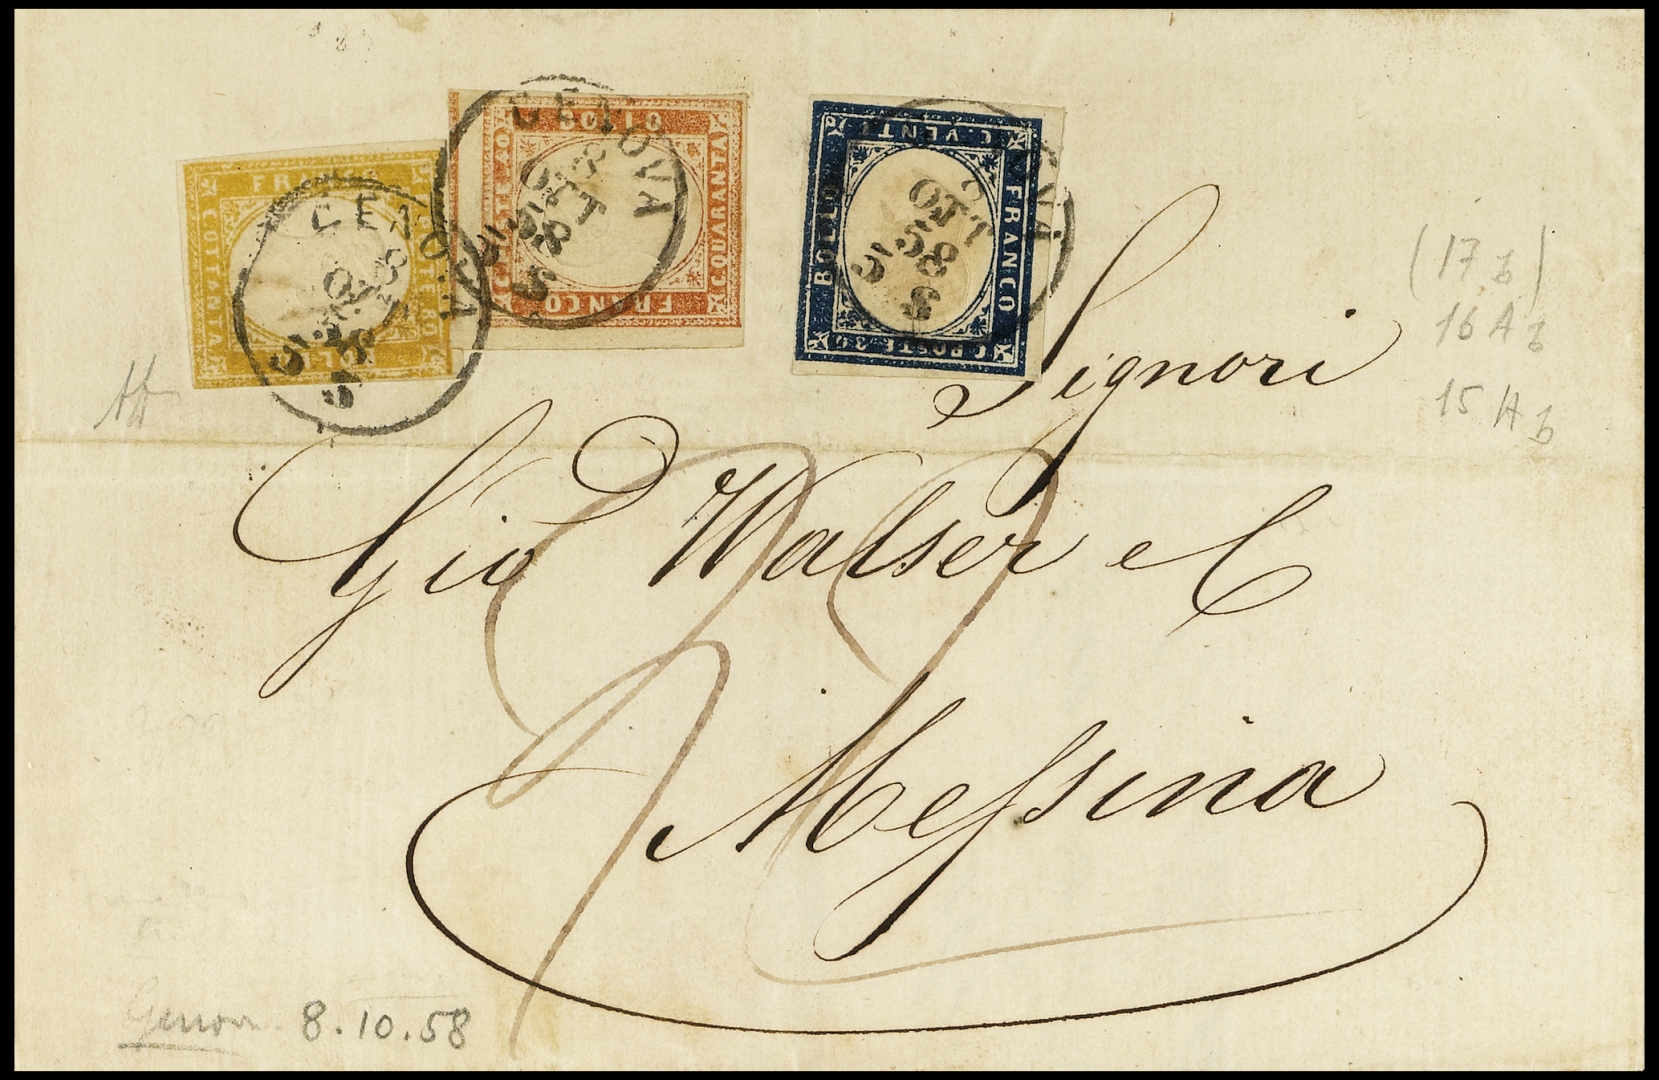 FRANCO
C. OTTANTA
BOLLO
BOLLO
C. POSTE 40
C. QUARANTA
FRANCO
C. VENTI
BOLLO
FRANCO
C. POSTE 20
GENOVA
8
OTT
58
GENOVA
8
OTT
58
8
OTT
58
Signori
Gio Walser e C
Messina
(17 b)
16 A b
15 A b
Genova 8.10.58